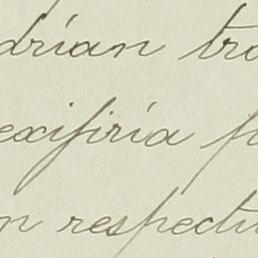 drian tra
exifiria f
n respectu